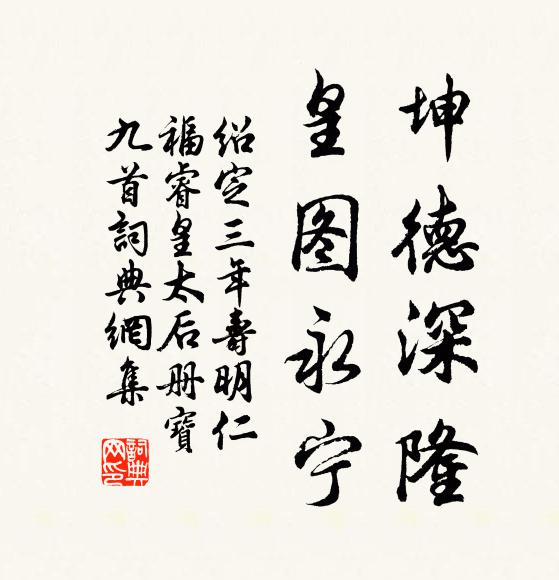 坤德深隆
皇图永宁
绍定三年壽明仁
福睿皇太后册寶
九首詞典網集
詞典
网印